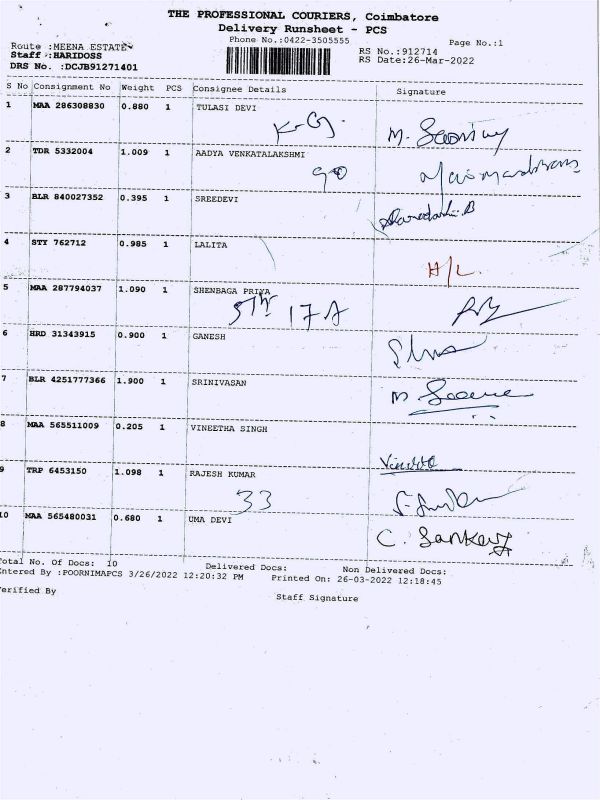 THE PROFESSIONAL COURIERS, Coimbatore
Delivery Runsheet - PCS
Phone No.:0422-3505555
Page No.:1
Route :MEENA ESTATE
RS No.:912714
Staff :HARIDOSS
RS Date:26-Mar-2022
DRS No. :DCJB91271401
S No Consignment No Weight PCS Consignee Details Signature
1 MAA 286308830 0.880 1 TULASI DEVI
2 TDR 5332004 1.009 1 AADYA VENKATALAKSHMI
90
3 BLR 840027352 0.395 1 SREEDEVI
4 STY 762712 0.985 1 LALITA
H/L.
5 MAA 287794037 1.090 1 SHENBAGA PRIYA
17A
6 HRD 31343915 0.900 1 GANESH
7 BLR 4251777366 1.900 1 SRINIVASAN
8 MAA 565511009 0.205 1 VINEETHA SINGH
9 TRP 6453150 1.098 1 RAJESH KUMAR
33
10 MAA 565480031 0.680 1 UMA DEVI
C. Sankar
Total No. Of Docs: 10 Delivered Docs: Non Delivered Docs:
Entered By :POORNIMAPCS 3/26/2022 12:20:32 PM Printed On: 26-03-2022 12:18:45
Verified By Staff Signature